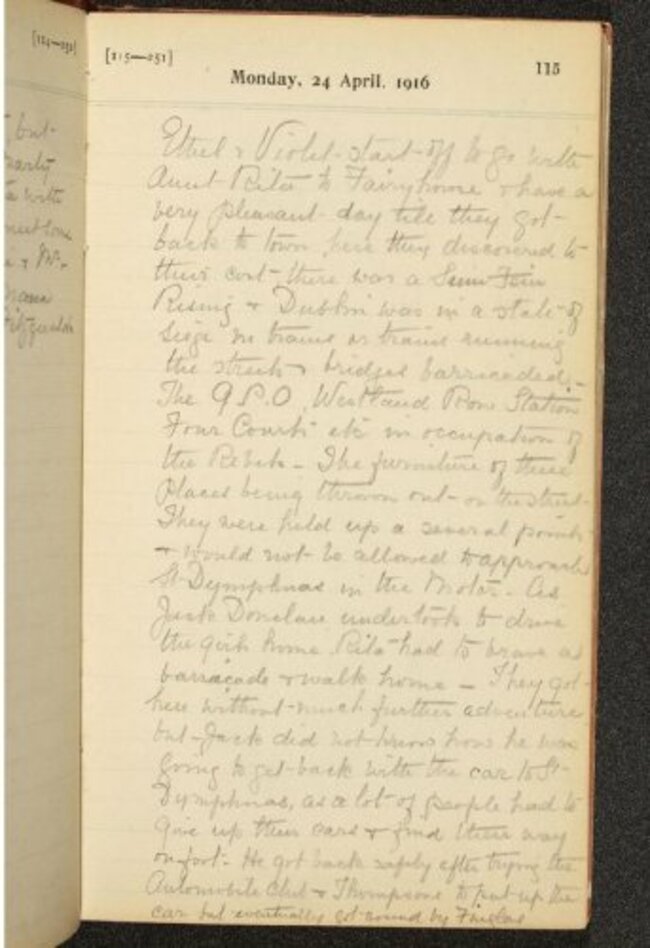 [114—252]
[115—251]
115
Monday, 24 April, 1916
but
party
with
& Mr.
Fitzgeralds
Ethel & Violet start off to go with
Aunt Rita to Fairyhouse & have a
very pleasant day till they got
back to town, here they discovered to
their cost there was a Sinn Fein
Rising & Dublin was in a state of
siege no trams or trains running
the streets & bridges barricaded. -
The G.P.O, Westland Row Station
Four Courts etc in occupation of
the Rebels - The furniture of these
places being thrown out on the street.
They were held up a several points
& would not be allowed to approach
St Dymphnas in the Motor. As
Jack Donelan undertook to drive
the girls home Rita had to brave a
barricade & walk home - They got
here without much further adventure
but Jack did not know how he was
going to get back with the car to St
Dymphnas, as a lot of people had to
give up their cars & find their way
on foot. He got back safely after trying the
Automobile Club & Thompsons to put up the
car but eventually got round by Finglas